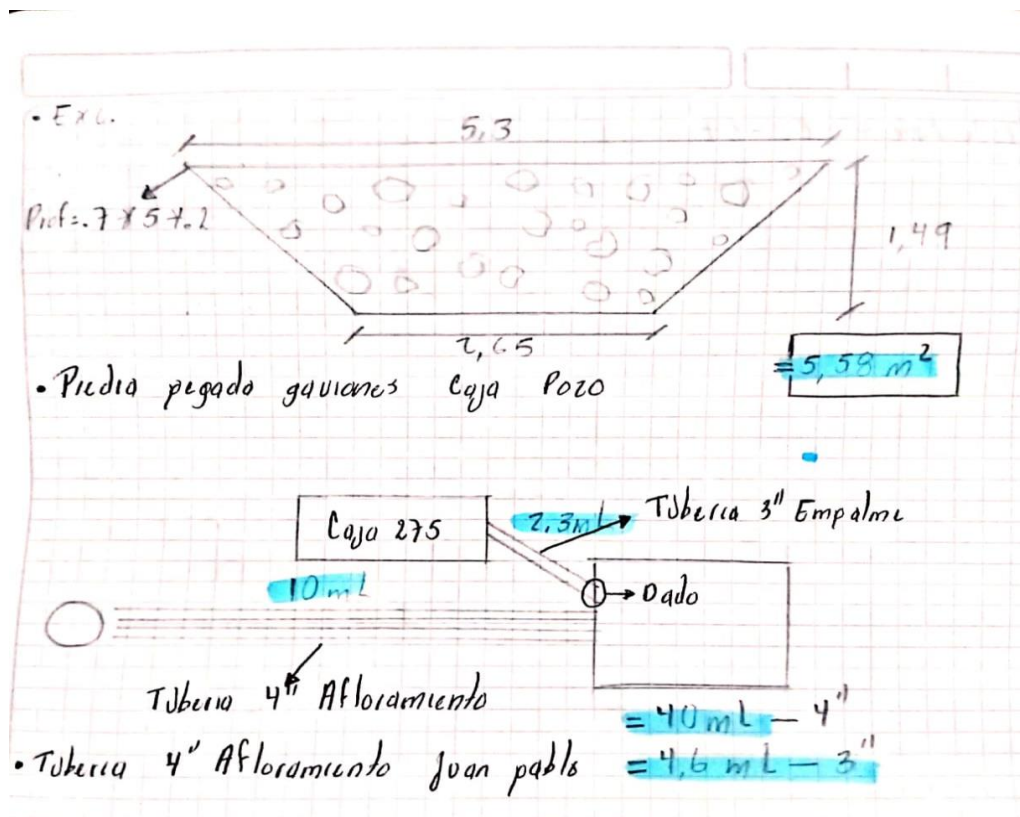 • Exc.
5,3
Prof=.7 * 5 +.2
1,49
2,65
= 5,58 m²
• Piedra pegada gaviones Caja Pozo
Caja 275
2.3ml
Tuberia 3" Empalme
10 ml
Dado
Tuberia 4" Afloramiento
= 40 mL — 4"
• Tuberia 4" Afloramiento Juan pablo = 4,6 mL — 3"